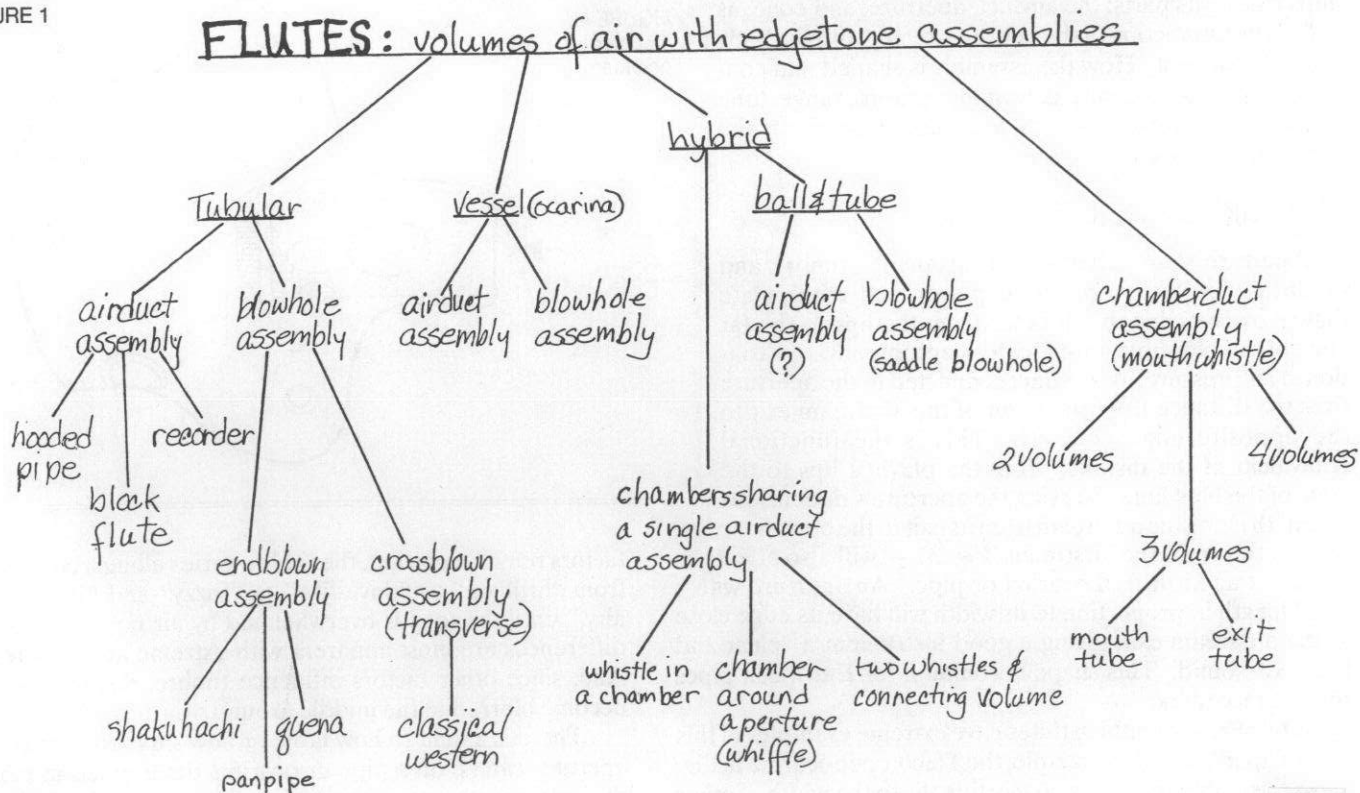 URE 1
FLUTES: volumes of air with edgetone assemblies
hybrid
Tubular
vessel (ocarina)
ball & tube
airduct
assembly
blowhole
assembly
airduct
assembly
blowhole
assembly
airduct
assembly
(?)
blowhole
assembly
(saddle blowhole)
chamberduct
assembly
(mouthwhistle)
hooded
pipe
block
flute
recorder
2 volumes
3 volumes
4 volumes
endblown
assembly
crossblown
assembly
(transverse)
chambers sharing
a single airduct
assembly
mouth
tube
exit
tube
shakuhachi
panpipe
quena
classical
western
whistle in
a chamber
chamber
around
aperture
(whiffle)
two whistles &
connecting volume